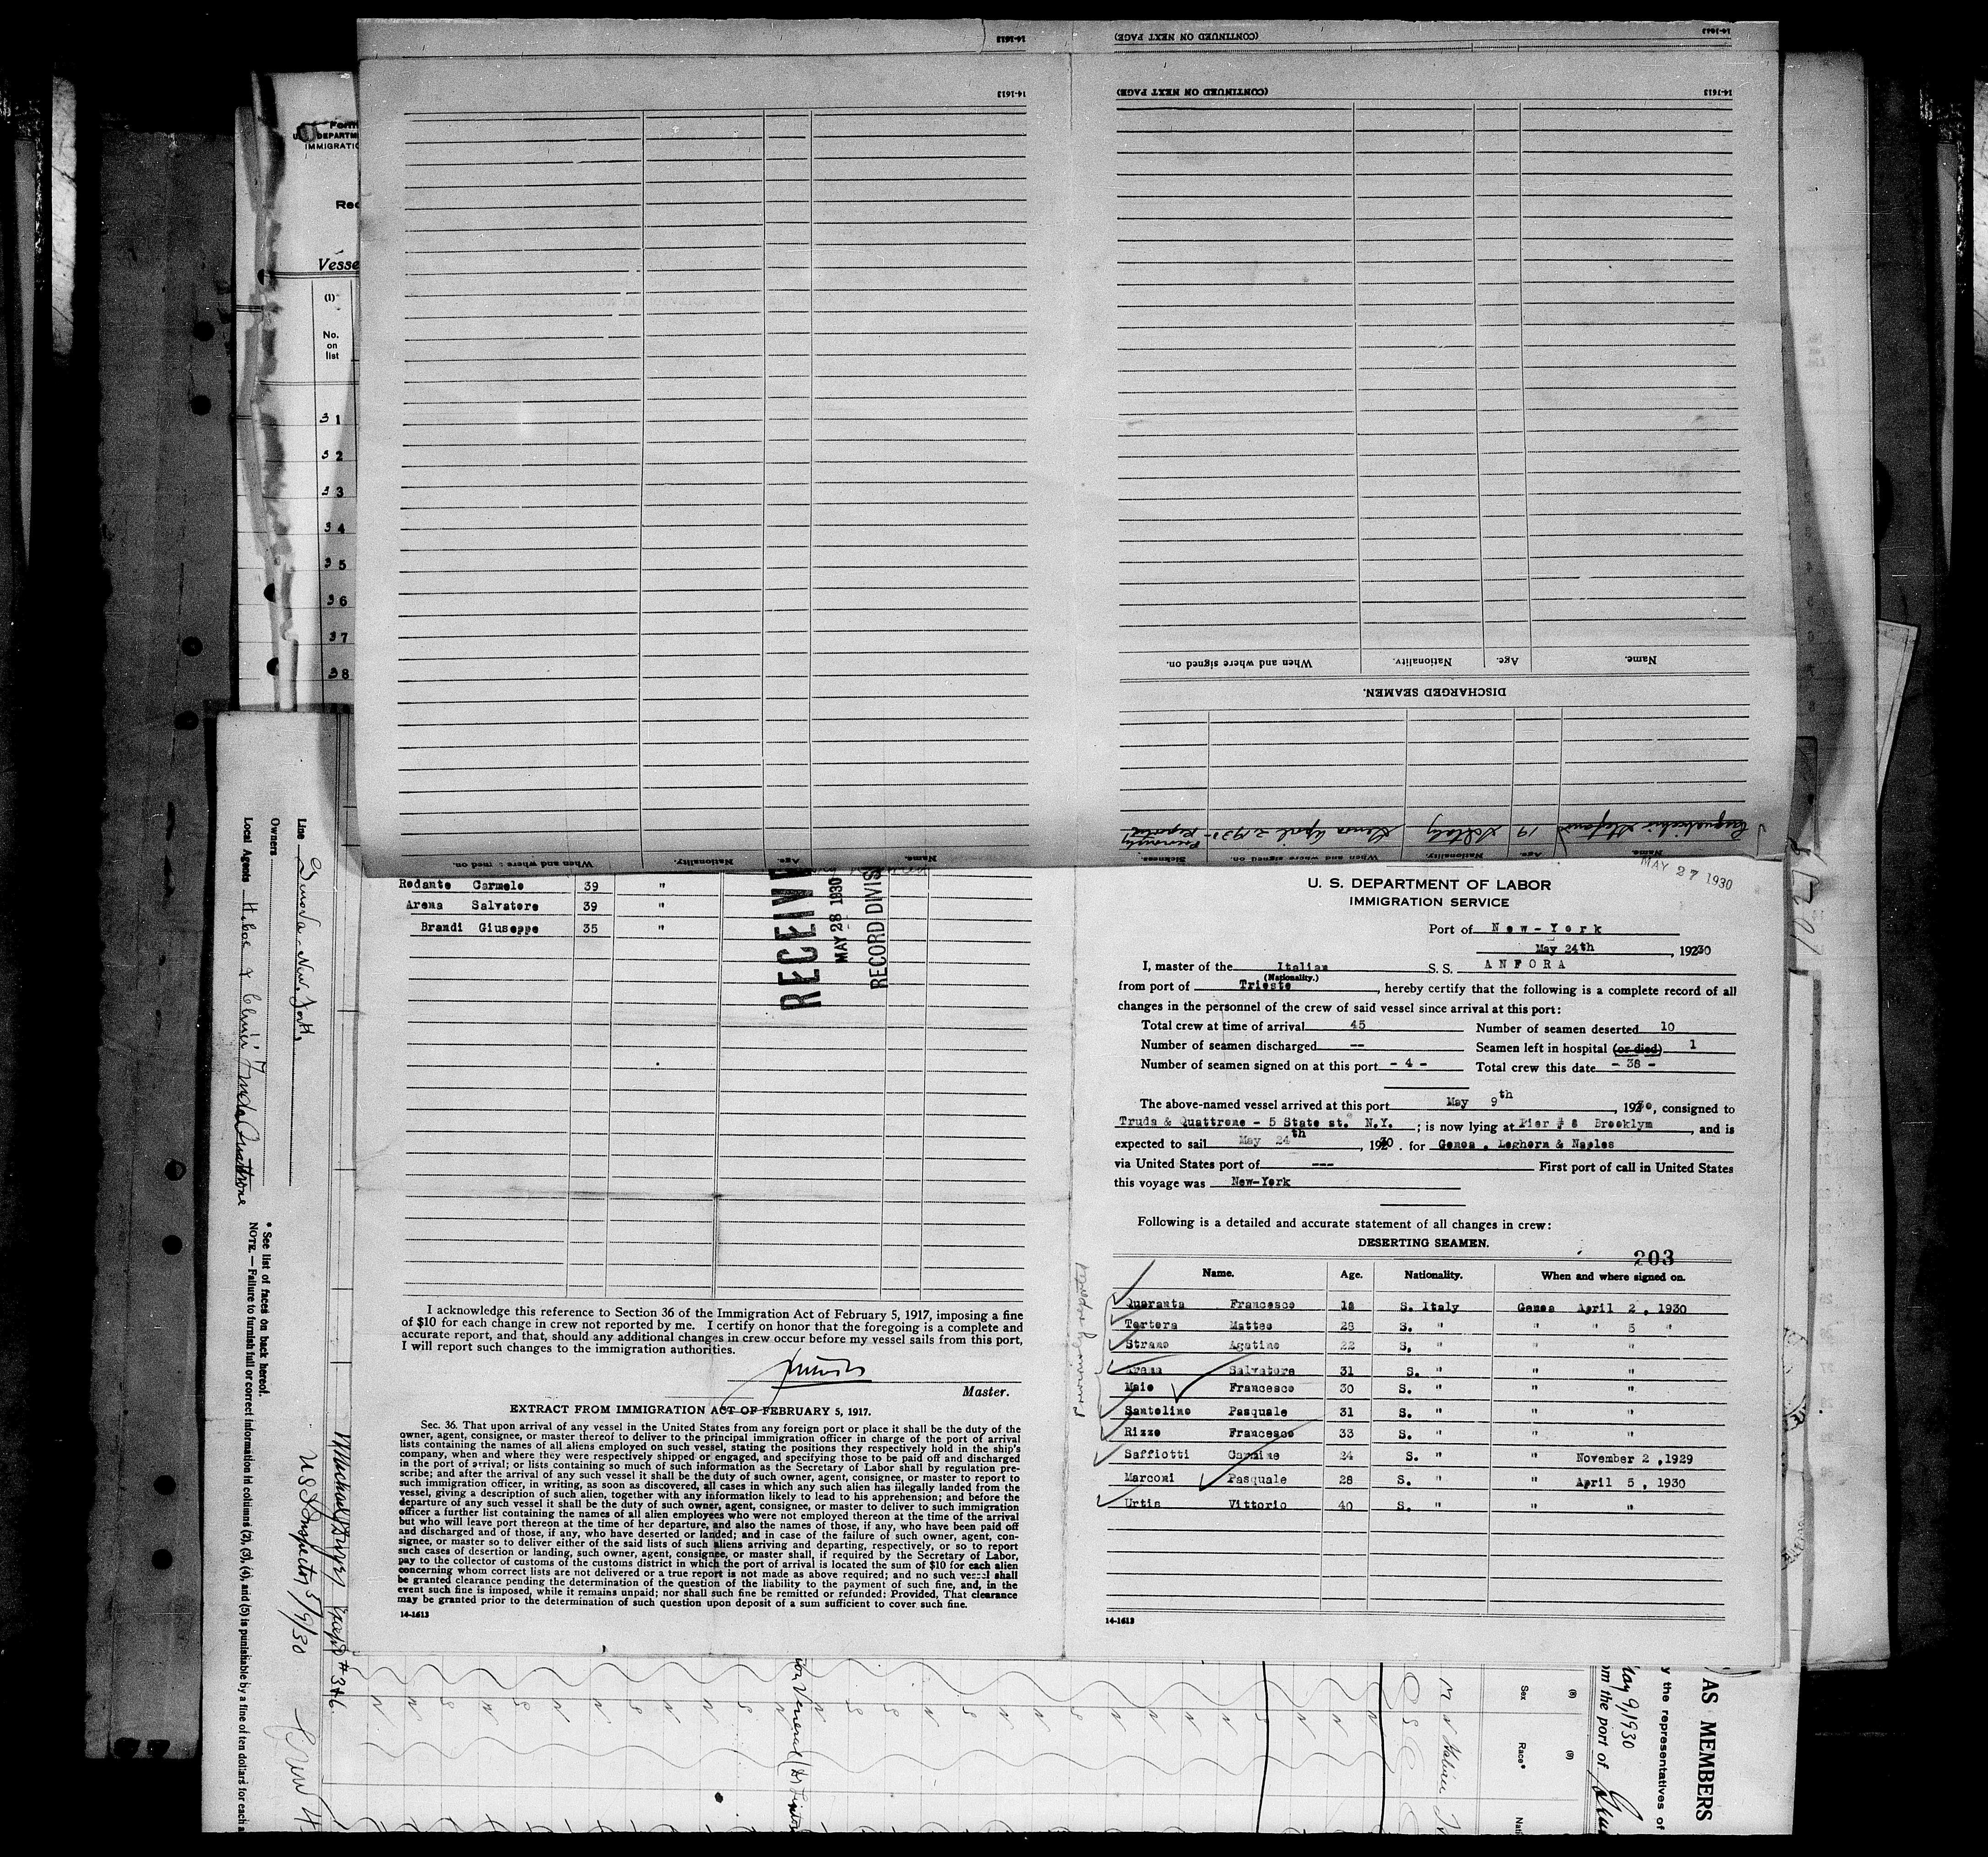 14-1613
(CONTINUED ON NEXT PAGE)
14-1613
14-1613
(CONTINUED ON NEXT PAGE)
14-1613
When and where signed on.
Nationality.
Age.
Name.
DISCHARGED SEAMEN.
Stefano 19 Italy Genoa April 2 1930 -
Sickness.
When and where signed on.
Nationality.
Age.
Name.
Form
U. S. DEPARTM
IMMIGRATIO
Vesse
(1)
No.
on
list
31
32
33
34
35
36
37
38
When and where
Nationality.
Age.
Name.
Redante Carmelo 39 "
Arena Salvatore 39 "
Brandi Giuseppe 35 "
RECEIV
MAY 28 1930
RECORD DIVIS
I acknowledge this reference to Section 36 of the Immigration Act of February 5, 1917, imposing a fine
of $10 for each change in crew not reported by me. I certify on honor that the foregoing is a complete and
accurate report, and that, should any additional changes in crew occur before my vessel sails from this port,
I will report such changes to the immigration authorities.
Master.
EXTRACT FROM IMMIGRATION ACT OF FEBRUARY 5, 1917.
Sec. 36. That upon arrival of any vessel in the United States from any foreign port or place it shall be the duty of the
owner, agent, consignee, or master thereof to deliver to the principal immigration officer in charge of the port of arrival
lists containing the names of all aliens employed on such vessel, stating the positions they respectively hold in the ship's
company, when and where they were respectively shipped or engaged, and specifying those to be paid off and discharged
in the port of arrival; or lists containing so much of such information as the Secretary of Labor shall by regulation pre-
scribe; and after the arrival of any such vessel it shall be the duty of such owner, agent, consignee, or master to report to
such immigration officer, in writing, as soon as discovered, all cases in which any such alien has illegally landed from the
vessel, giving a description of such alien, together with any information likely to lead to his apprehension; and before the
departure of any such vessel it shall be the duty of such owner, agent, consignee, or master to deliver to such immigration
officer a further list containing the names of all alien employees who were not employed thereon at the time of the arrival
but who will leave port thereon at the time of her departure, and also the names of those, if any, who have been paid off
and discharged and of those, if any, who have deserted or landed; and in case of the failure of such owner, agent, con-
signee, or master so to deliver either of the said lists of such aliens arriving and departing, respectively, or so to report
such cases of desertion or landing, such owner, agent, consignee, or master shall, if required by the Secretary of Labor,
pay to the collector of customs of the customs district in which the port of arrival is located the sum of $10 for each alien
concerning whom correct lists are not delivered or a true report is not made as above required; and no such vessel shall
be granted clearance pending the determination of the question of the liability to the payment of such fine, and, in the
event such fine is imposed, while it remains unpaid; nor shall such fine be remitted or refunded: Provided, That clearance
may be granted prior to the determination of such question upon deposit of a sum sufficient to cover such fine.
14-1613
MAY 27 1930
U. S. DEPARTMENT OF LABOR
IMMIGRATION SERVICE
Port of New-York
May 24th, 19230
I, master of the Italian S. S. ANFORA
(Nationality.)
from port of Trieste, hereby certify that the following is a complete record of all
changes in the personnel of the crew of said vessel since arrival at this port:
Total crew at time of arrival 45 Number of seamen deserted 10
Number of seamen discharged -- Seamen left in hospital (or died) 1
Number of seamen signed on at this port - 4 - Total crew this date - 38 -
The above-named vessel arrived at this port May 9th, 1930, consigned to
Truda & Quattrone - 5 State st. N.Y.; is now lying at Pier # 6 Brooklym, and is
expected to sail May 24th, 1930. for Genoa . Leghorn & Naples
via United States port of --- First port of call in United States
this voyage was New-York
Following is a detailed and accurate statement of all changes in crew:
DESERTING SEAMEN.
203
Name. Age. Nationality. When and where signed on.
Quaranta Francesco 18 S. Italy Genoa April 2, 1930
Tortora Matteo 28 S. " " " 5 "
Strano Agatino 22 S. " " "
Arena Salvatore 31 S. " " "
Maio Francesco 30 S. " " "
Santolino Pasquale 31 S. " " "
Rizzo Francesco 33 S. " " "
Saffiotti Carmine 24 S. " " November 2, 1929
Marconi Pasquale 28 S. " " April 5, 1930
Urtis Vittorio 40 S. " " "
14-1613
Line Genova - New. York
Owners
Local Agents Truda Quattrone
* See list of races on back hereof.
NOTE.—Failure to furnish full or correct information in columns (2), (3), (4), and (5) is punishable by a fine of ten dollars for each a
US Inspector 5/9/30
#346
AS MEMBERS
y the representatives of
May 9, 1930
om the port of
(8)
Sex
(9)
Race*
Nati